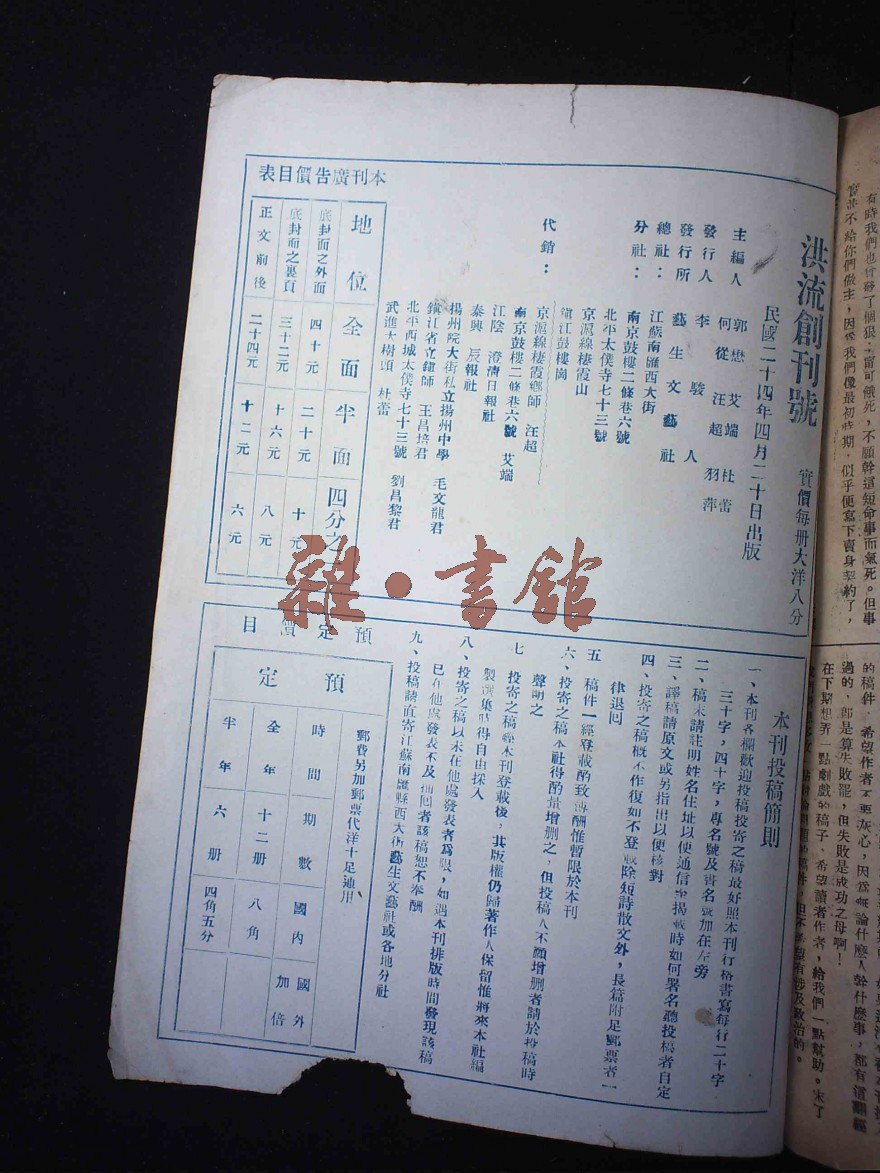 洪流創刊號
實價每册大洋八分
民國二十四年四月二十日出版
主編人 郭懋 艾端 杜蕾
何從 汪超 羽萍
發行人 李駿人
發行所 藝生文藝社
總社： 江蘇南匯西大街
分社： 南京鼓樓二條巷六號
北平太僕寺七十三號
京滬線棲霞山
鎮江鼓樓崗
代銷：
京滬線棲霞鄉師 汪超
南京鼓樓二條巷六號 艾端
江陰 澄清日報社
泰興 辰報社
揚州院大街私立揚州中學 毛文龍君
鎮江省立鎮師 王昌培君
北平西城太僕寺七十三號 劉昌黎君
武進大樹頭 杜蕾
本刊廣告價目表
地位 全面 半面 四分之
底封面之外面 四十元 二十元 十元
底封面之裏頁 三十二元 十六元 八元
正文前後 二十四元 十二元 六元
本刊投稿簡則
一、本刊各欄歡迎投稿投寄之稿最好照本刊行格書寫每行二十字
三十字，四十字，專名號及書名號加在左旁
二、稿末請註明姓名住址以便通信至揭載時如何署名聽投稿者自定
三、譯稿請原文或另指出以便核對
四、投寄之稿概不作復如不登載除短詩散文外，長篇附足郵票者一
律退回
五 稿件一經登載酌致薄酬惟暫限於本刊
六、投寄之稿本社得酌量增删之，但投稿人不願增删者請於投稿時
聲明之
七 投寄之稿經本刊登載後，其版權仍歸著作人保留惟將來本社編
製選集時得自由採入
八、投寄之稿以未在他處發表者爲限，如遇本刊排版時間發現該稿
已在他處發表不及抽回者該稿恕不奉酬
九、投稿請直寄江蘇南匯縣西大街藝生文藝社或各地分社
預定價目
郵費另加郵票代洋十足通用
預定
時間 期數 國內 國外
全年 十二册 八角 加倍
半年 六册 四角五分
雜·書館
有時我們也曾夢了個狠，甯可餓死，不願幹這短命事而氣死。但事
實並不給你們做主，因爲我們像最初時期，似乎便寫下賣身契約了，
的稿件，希望作者不要灰心，因爲無論什麼人幹什麼事，都有這翻經
過的、即是算失敗罷，但失敗是成功之母啊！
在下期想弄一點劇戲的稿子、希望讀者作者，給我們一點幫助。末了